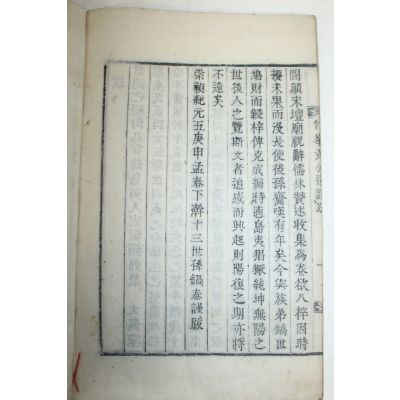 闕顚末壇廟祝辭儒林贊述收集爲卷欲入梓因時
擾未果而漫長使後孫齎嘆有年矣今與族弟鎬世
鳩財而鋟梓俾克成編時適島夷猖獗純坤無陽之
世後人之覽斯文者追感而興起則陽復之期亦將
不遠矣
崇禎紀元五庚申孟春下澣十三世孫鎬泰謹跋